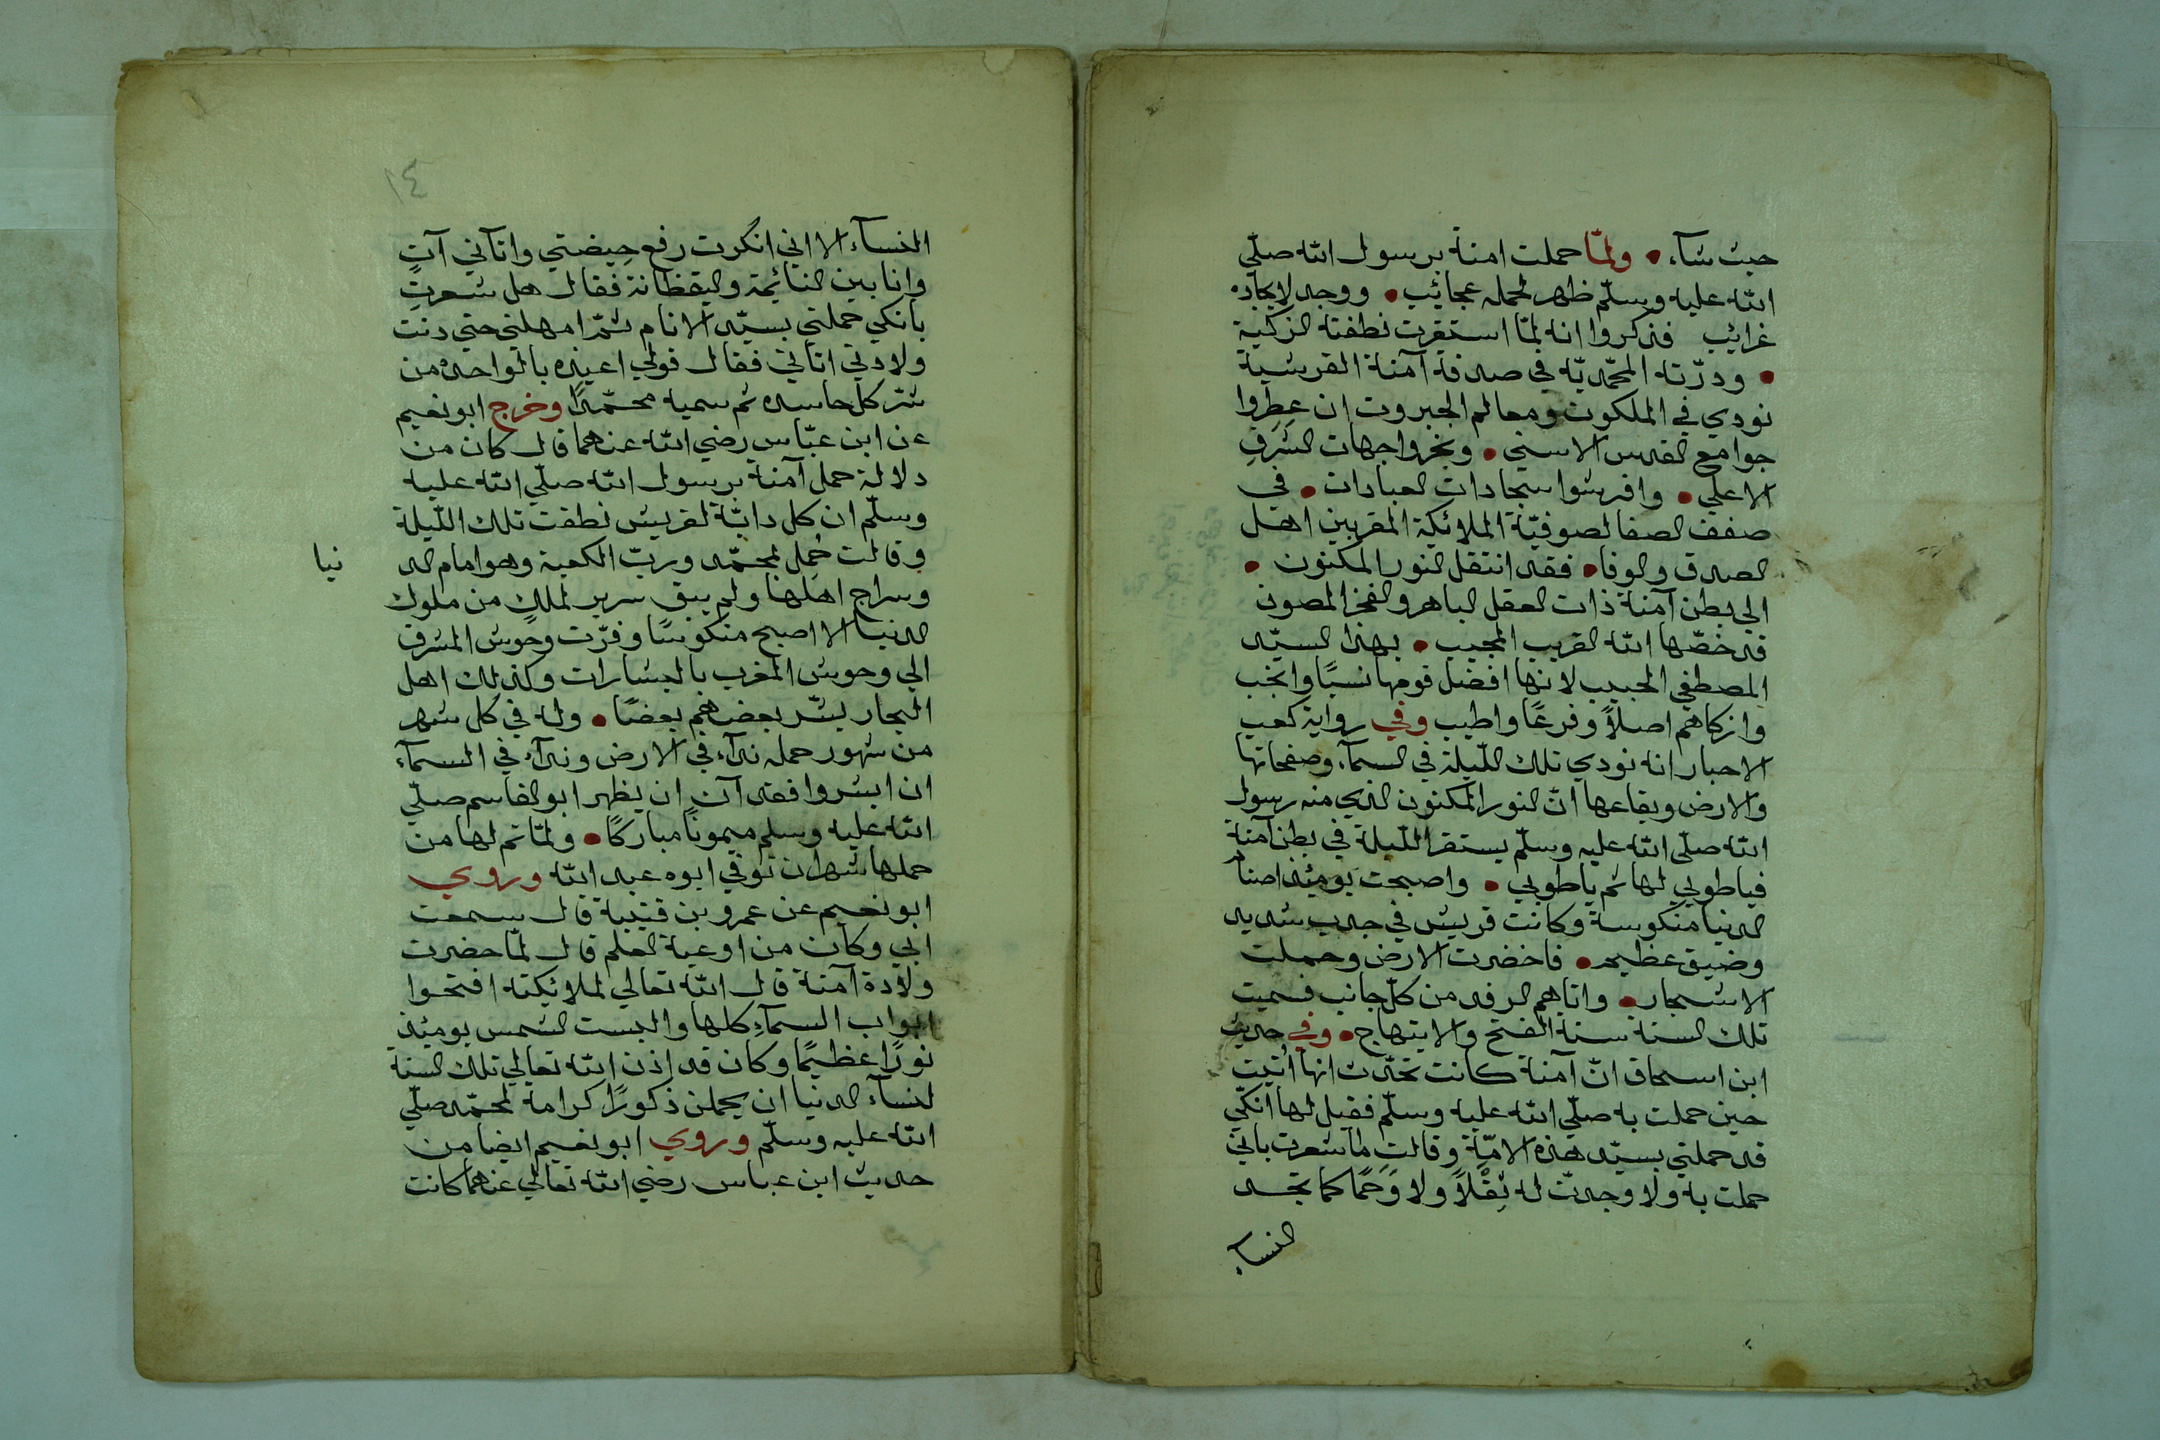 حيث شآء • ولمّا حملت امنة برسول الله صلّي
الله عليه وسلّم ظهر لحمله عجائيب • ووجد لايجاده
غرائيب فذكروا انه لمّا استقرت نطفته الزكية
• ودرّته المحمّديّة في صدفة آمنة القرشية
نودي في الملكوت ومعالم الجبروت ان عطِروا
جوامع القدس الاسني • وبخروا جهات الشرفِ
الاعلي • وافرشوا سجادات العبادات • في
صفف الصفا لصوفيّة الملائكة المقربين اهل
الصدق والوفا • فقد انتقل النور المكنون •
الي بطن آمنة ذات العقل الباهر والفخر المصون
قد خصّها الله القريب المجيب • بهذا السيّد
المصطفي الحبيب لانها افضل قومها نسبًا وانخب
وازكاهم اصلاً وفرعًا واطيب وفي رواية كعب
الاحبار انه نودي تلك اللّيلة في السمآء وصفحاتها
والارض وبقاعها انّ النور المكنون الذي منه رسول
الله صلّي الله عليه وسلّم يستقر اللّيلة في بطن آمنة
فياطوبي لها ثم ياطوبي • واصبحت يومئذ اصنام
الدنيا منكوسة وكانت قريش في جدب شديد
وضيق عظيم • فاخضرت الارض وحملت
الاشجار • واتاهم الرفد من كلّ جانب فسميت
تلك السنة سنة الفتح والابتهاج • وفي حديث
ابن اسحاق انّ آمنة كانت تحدّث انها اُتيت
حين حملت به صلّي الله عليه وسلّم فقيل لها انكي
قد حملتي بسيّد هذه الامّة وقالت ما شعرت باني
حملت به ولا وجدت له ثِقْلاً ولا وَحَمًا كما تجد
النسآ
١٤
النسآء الا اني انكرت رفع حِيضتي واتآني آتٍ
وانا بين النائيمة واليقظانة فقال هل شعرتِ
بانكي حملتي بسيّد الانام ثمّ امهلني حتي دنت
ولادتي اتاني فقال قولي اعيذه بالواحد من
شرّ كل حاسد ثم سميه محمّدًا وخرج ابو نعيم
عن ابن عبّاس رضي الله عنهما قال كان من
دلالة حمل آمنة برسول الله صلّي الله عليه
وسلّم ان كل دابّة لقريش نطقت تلك اللّيلة
وقالت حُمِل بمحمّد وربّ الكعبة وهو امام الد
نيا
وسراج اهلها ولم يبق سرير لملكٍ من ملوك
الدنيا الا اصبح منكوسًا وفرّت وحوش المشرق
الي وحوش المغرب بالبشارات وكذلك اهل
البحار يبشّر بعضهم بعضًا • وله في كل شهر
من شهور حمله ندآء في الارض وندآء في السمآء
ان ابشروا فقد آن ان يظهر ابو القاسم صلّي
الله عليه وسلم ميمونًا مباركًا • ولمّا تم لها من
حملها شهران توفي ابوه عبد الله وروي
ابو نعيم عن عمرو بن قتيبة قال سمعت
ابي وكان من اوعية العلم قال لمّا حضرت
ولادة آمنة قال الله تعالي لملائيكته افتحوا
ابواب السمآء كلها والبست الشمس يومئذ
نورًا عظيمًا وكان قد اذن الله تعالي تلك السنة
لنسآء الدنيا ان يحملن ذكورًا كرامة لمحمّد صلّي
الله عليه وسلّم وروي ابو نعيم ايضا من
حديث ابن عباس رضي الله تعالي عنهما كانت